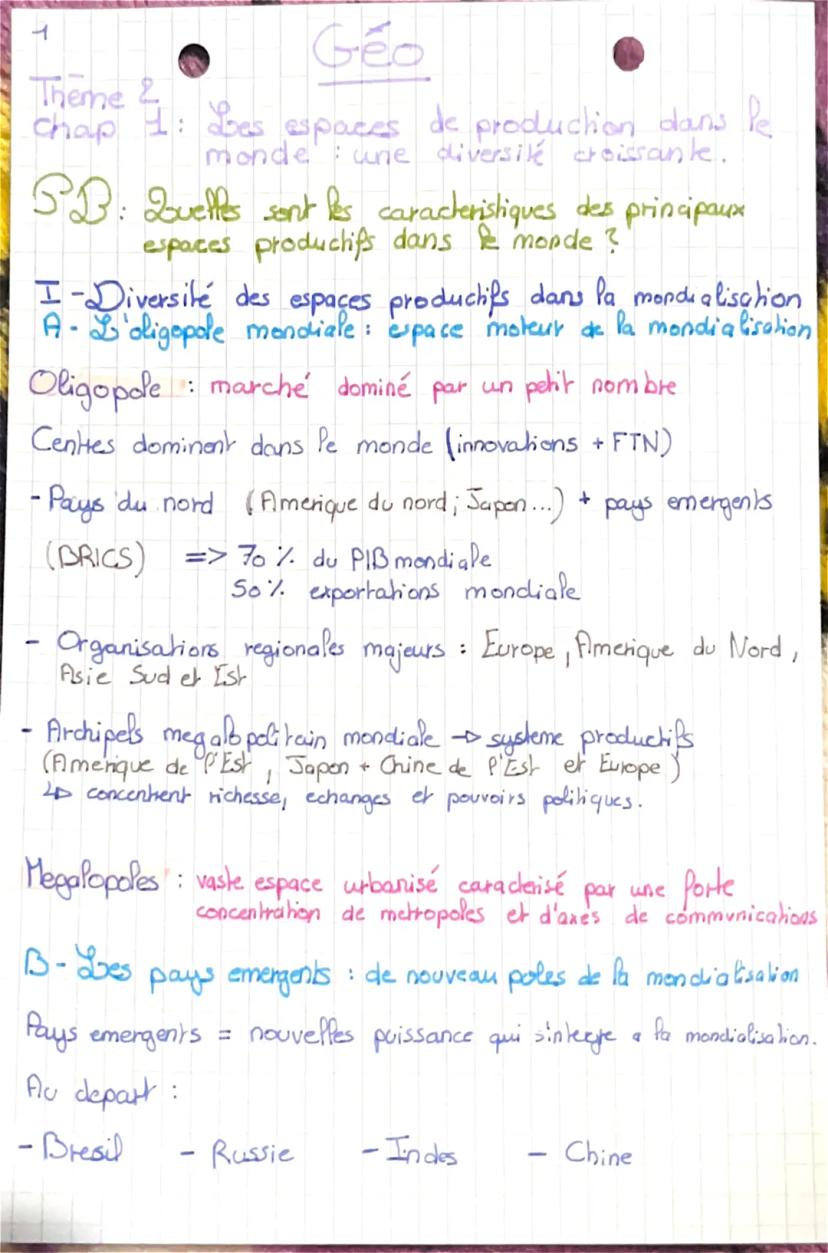 1
Géo
Thème 2
Chap 1 : Les espaces de production dans le
monde : une diversité croissante.
PB : Quelles sont les caracteristiques des principaux
espaces productifs dans le monde ?
I - Diversité des espaces productifs dans la mondialisation
A - L'oligopole mondiale : espace moteur de la mondialisation
Oligopole : marché dominé par un petit nombre
Centres dominent dans le monde (innovations + FTN)
- Pays du nord (Amerique du nord ; Japon...) + pays emergents
(BRICS) => 70 % du PIB mondiale
50 % exportations mondiale
- Organisations regionales majeurs : Europe, Amerique du Nord,
Asie Sud et Est
- Archipels megalopolitain mondiale → systeme productifs
(Amerique de l'Est, Japon + Chine de l'Est et Europe)
↳ concentrent richesse, echanges et pouvoirs politiques.
Megalopoles : vaste espace urbanisé caracterisé par une forte
concentration de metropoles et d'axes de communications
B - Les pays emergents : de nouveau poles de la mondialisation
Pays emergents = nouvelles puissance qui s'integre a la mondialisation.
Au depart :
- Bresil - Russie - Indes - Chine